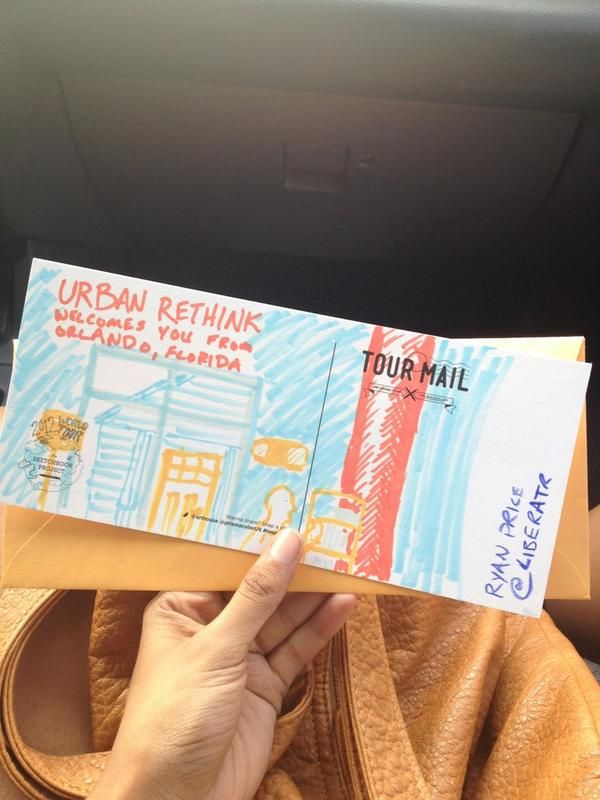 URBAN RETHINK
WELCOMES YOU FROM
ORLANDO, FLORIDA
2012 WORLD
TOUR
THE
SKETCHBOOK
PROJECT
Wanna share? Snap a
@arthouse @prismacolorUS #tour
TOUR MAIL
X
RYAN PRICE
@LIBERATR